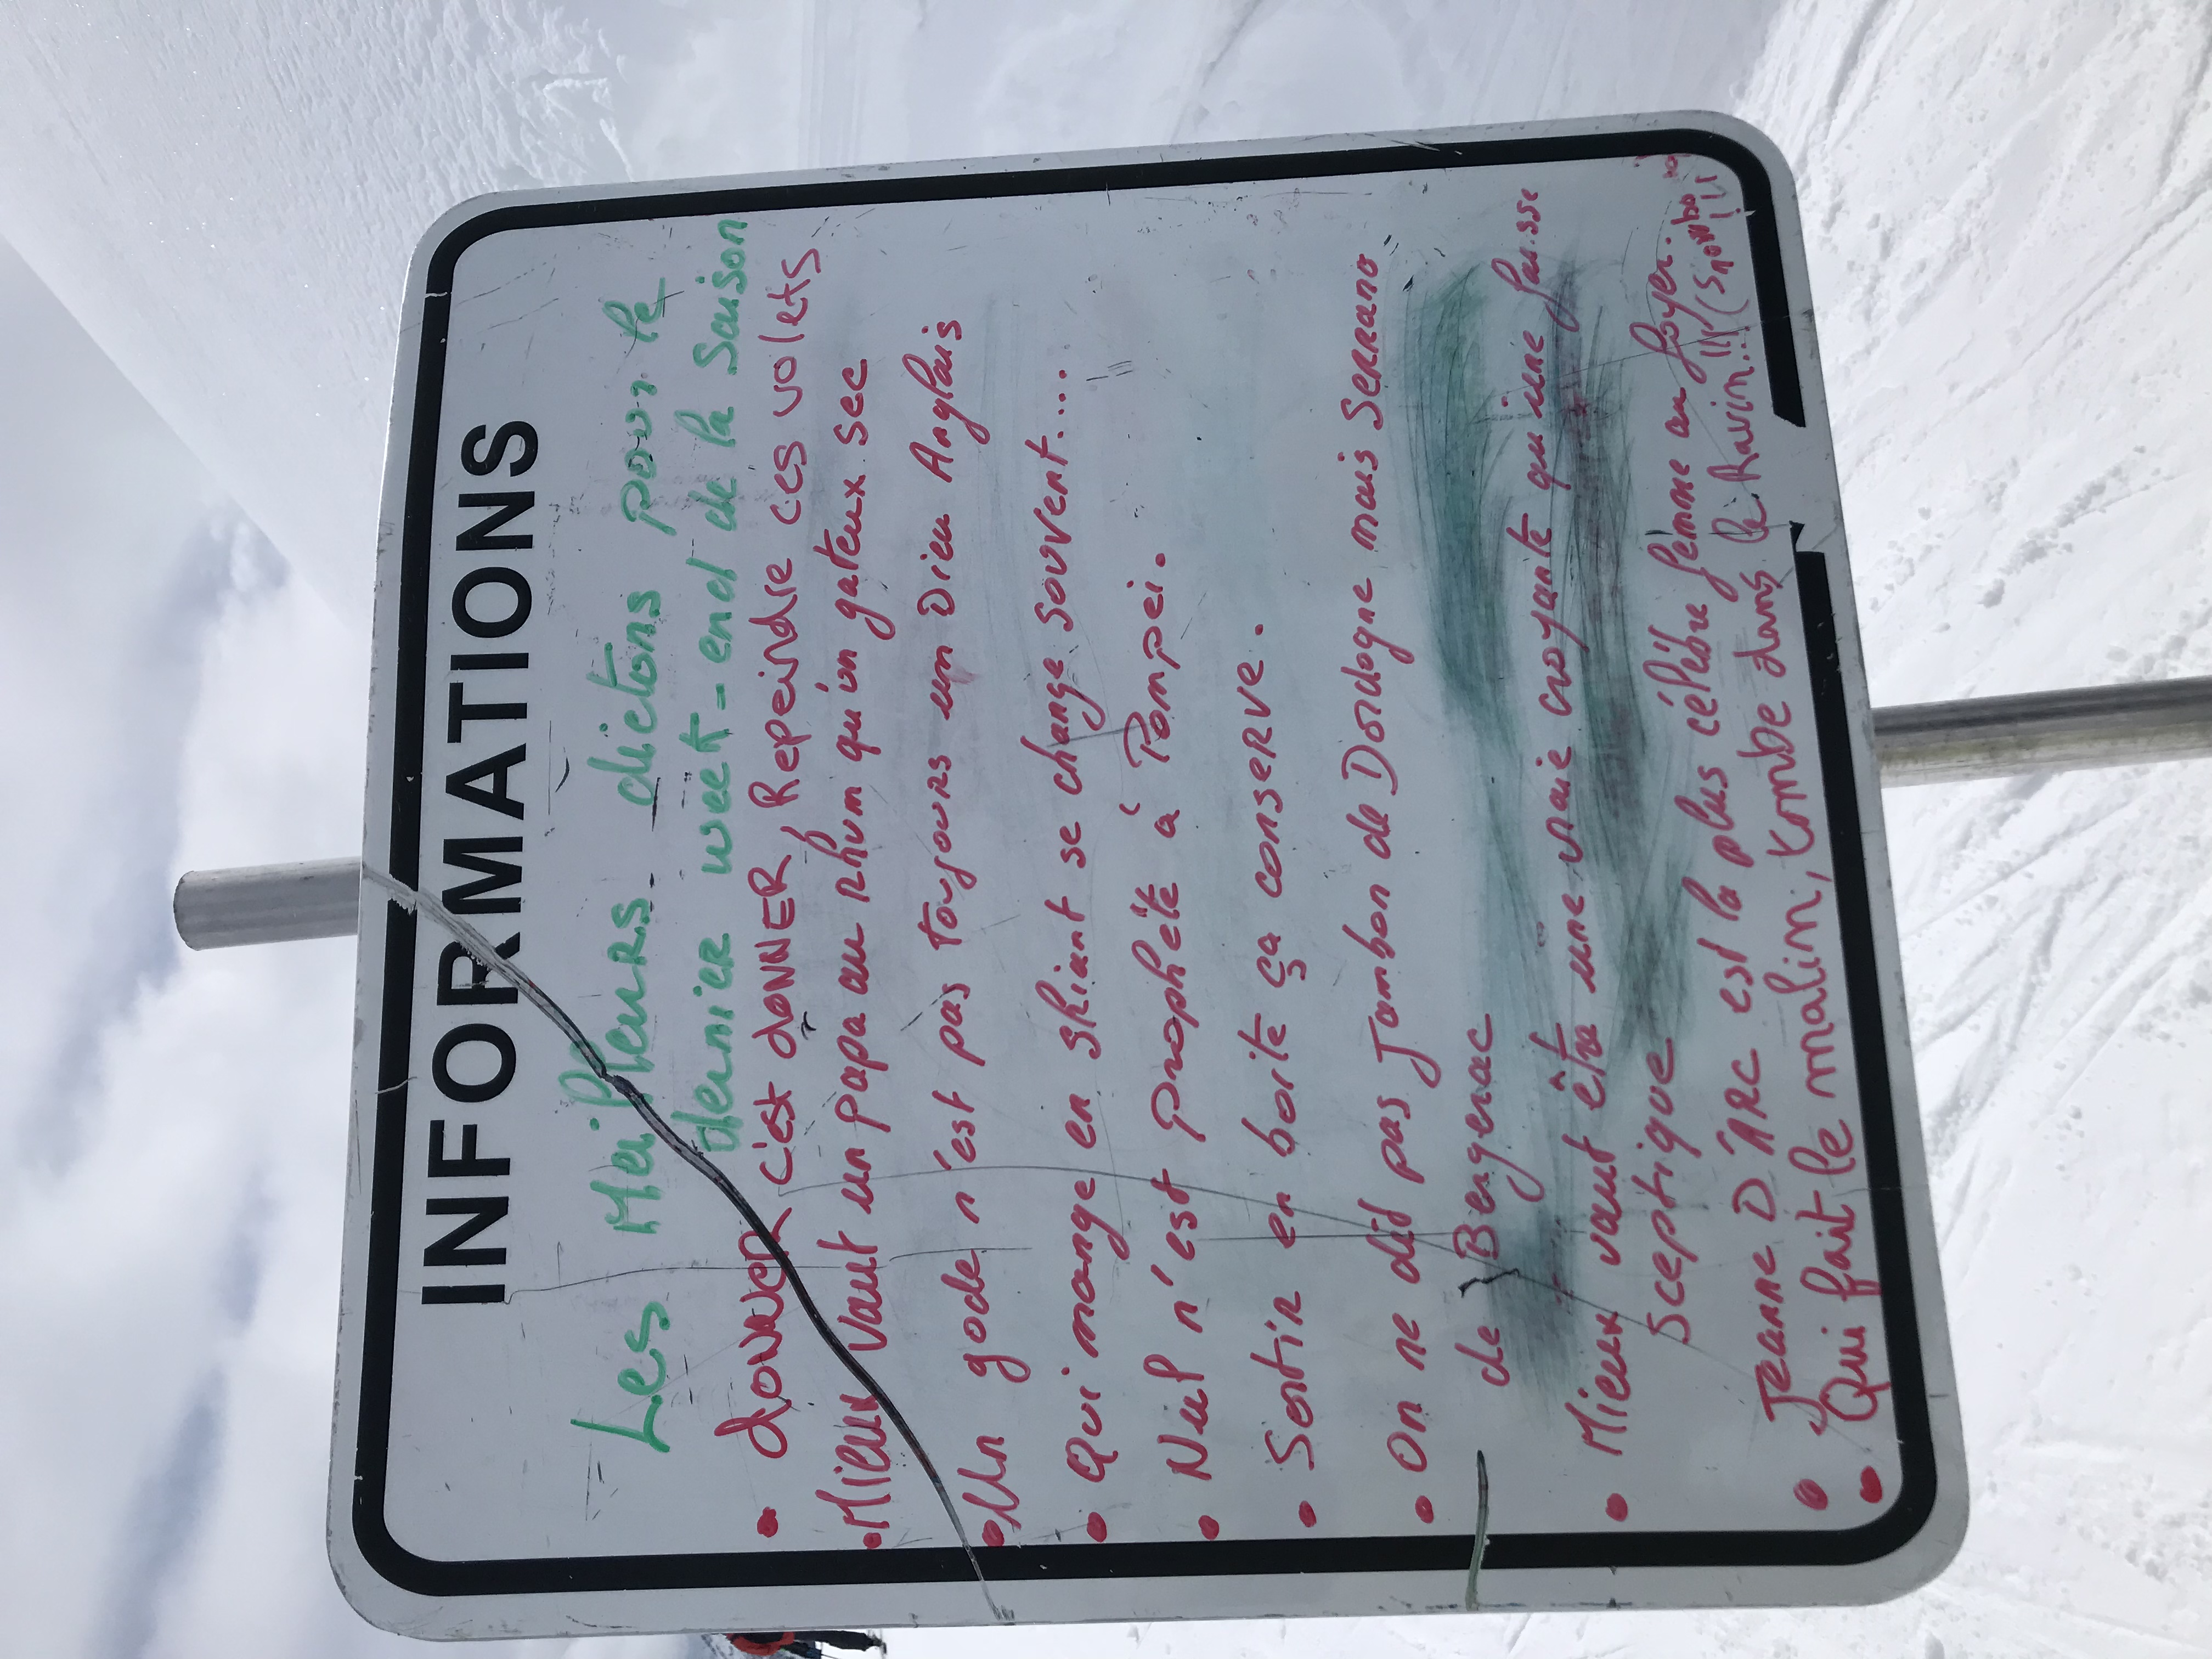 INFORMATIONS
Les Meilleurs dictons pour le
dernier week-end de la Saison
• donner c'est donner, Repeindre ces volets
• Mieux vaut un papa au Rhum qu'un gateux sec
• Un gode n'est pas toujours un Dieu Anglais
• Qui mange en skiant se change souvent....
• Nul n'est prophète à Pompei.
• Sentir en boite ça conserve.
• On ne dit pas Jambon de Dordogne mais Serrano
de Bergerac
• Mieux vaut être une vraie croyante qu'une fausse
sceptique
• Jeanne D'ARC est la plus célèbre femme au foyer.
• Qui fait le malin, tombe dans le Ravin...!!!